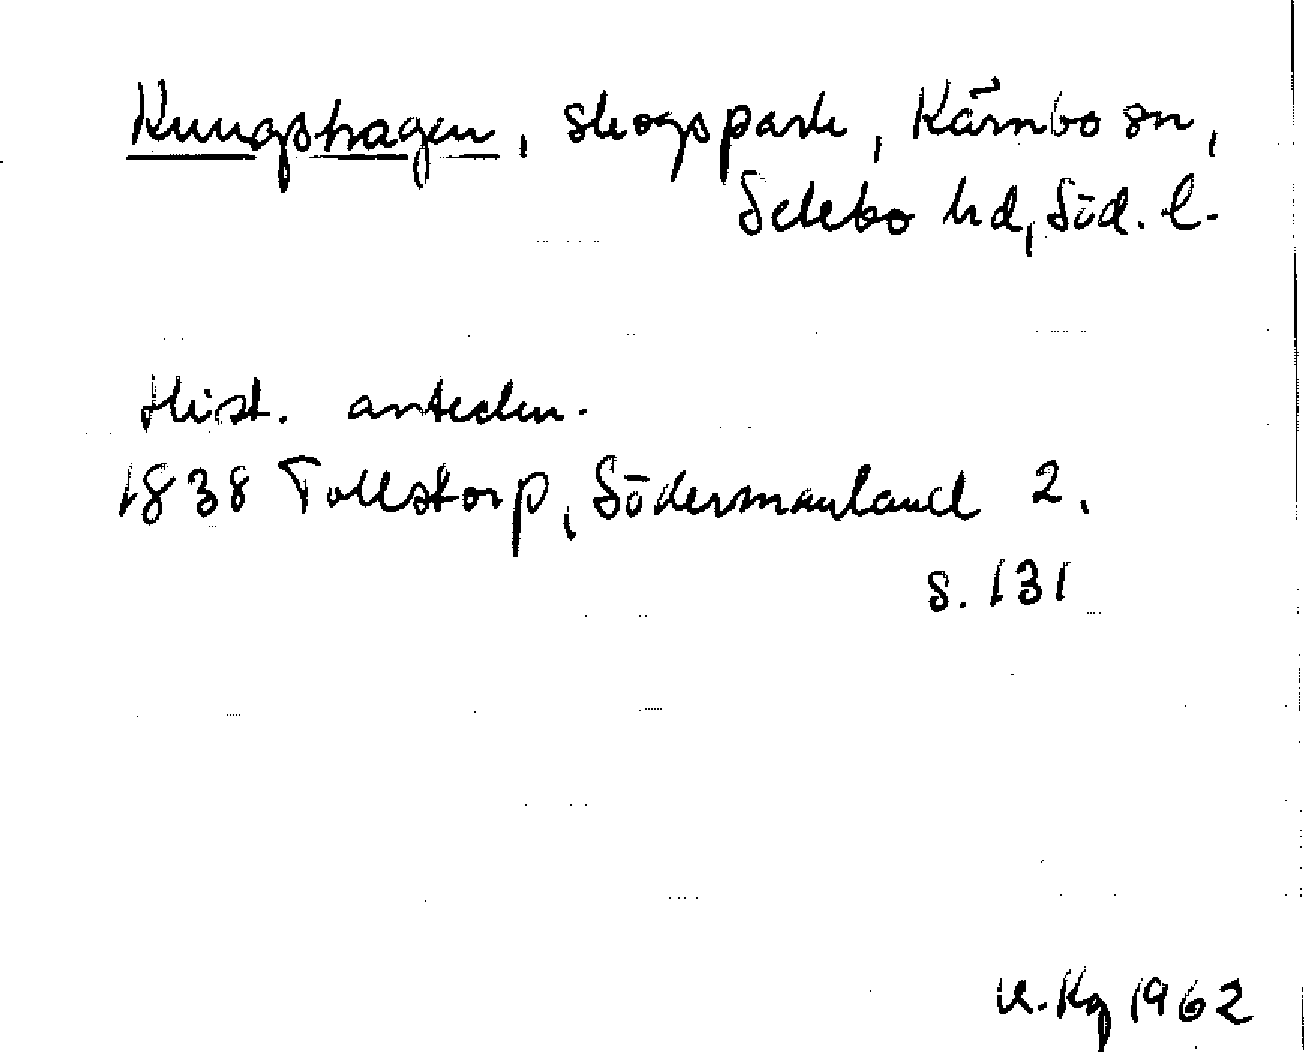 Kungshagen, skogspark, Kärnbo sn,
Selebo hd, Söd. l.
Hist. anteckn.
1838 Tollstorp, Södermanland 2.
s. 131
K. Kg 1962